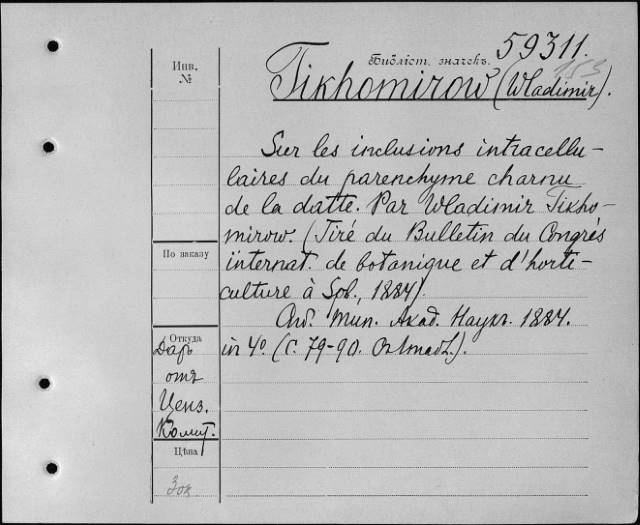 Инв.
№
Библіст. значекъ. 59311.
153
Tikhomirow (Wladimir).
Sur les inclusions intracellu-
laires du parenchyme charnu
de la datte. Par Wladimir Tikho-
mirow. (Tiré du Bulletin du Congrès
internat. de botanique et d'horti-
culture à Spb., 1884).
Спб. Тип. Акад. Наукъ. 1884.
in 4° (С. 79-90.
По заказу
Откуда
Даръ
отъ
Ценз.
Комит.
Цѣна
30к